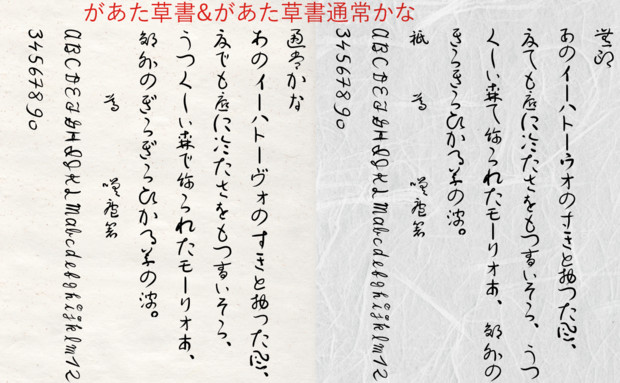 があた草書&があた草書通常かな
あのイーハトーウォのすきと折った風、
夏ても底に冷たさをもつ青いそら、うつ
くしい森て飾られたモーリオ市、郊外の
きらきらひかる草の波。
祇 為
ABCDEFGHIJKLMabcdefghijklm12
34567890
通常かな
あのイーハトーヴォのすきと折った風、
夏でも底に冷たさをもつ青いそら、
うつくしい森で飾られたモーリオ市、
郊外のぎらぎらひかる草の波。
為
ABCDEFGHIJKLMabcdefghijklm12
34567890